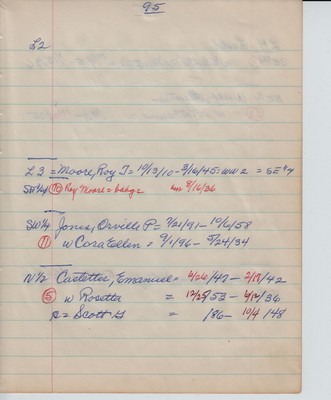 95
L2
L3 = Moore, Roy T = 10/13/10 - 3/16/45 = WW2 = SE 1/4
SE 1/4 (10) Roy Moore = baby = 8/16/36
SW 1/4 Jones, Orville P = 7/21/91 - 10/6/58
(11) w Cora Ellen = 9/1/96 - 5/24/34
N 1/2 Castetter, Emanuel = 6/26/47 - 2/17/42
(5) w Rosetta = 12/25/53 - 4/12/36
s = Scott G = /86 - 10/4/48